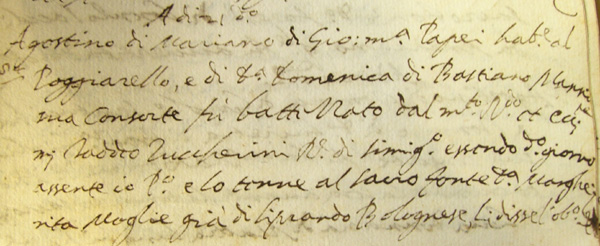 A di 21 do.
Agostino di Mariano di Gio: ma. Papei habe. al
Poggiarello, e di Da. Domenica di Bastiano
sua Consorte fù battizzato dal mto. Rdo. et
Taddeo Zuccherini Re. di essendo do. giorno
assente io Po. e lo tenne al sacro fonte Da. Marghe-
rita Moglie già di Liprando Bolognese, li disse l'obo.